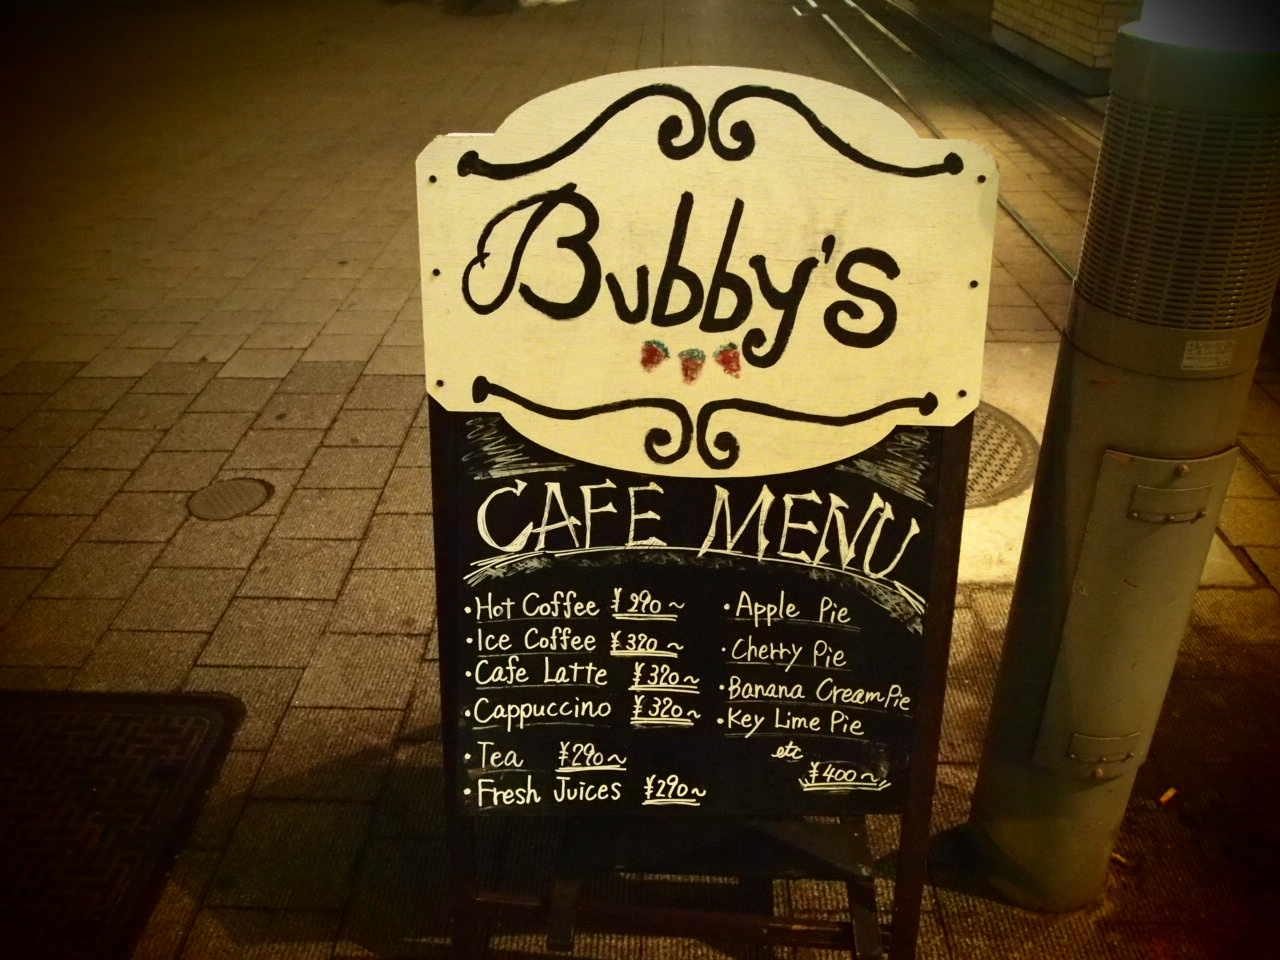 Bubby's
CAFE MENU
・Hot Coffee ¥290~
・Ice Coffee ¥320~
・Cafe Latte ¥320~
・Cappuccino ¥320~
・Tea ¥290~
・Fresh Juices ¥290~
・Apple Pie
・Cherry Pie
・Banana Cream Pie
・Key Lime Pie
etc
¥400~